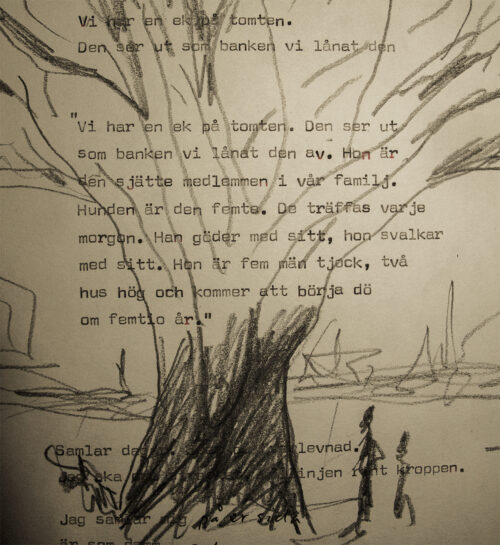 Vi har en ek på tomten.
Den ser ut som banken vi lånat den
"Vi har en ek på tomten. Den ser ut
som banken vi lånat den av. Hon är
den sjätte medlemmen i vår familj.
Hunden är den femte. De träffas varje
morgon. Han göder med sitt, hon svalkar
med sitt. Hon är fem män tjock, två
hus hög och kommer att börja dö
om femtio år."
Samlar levnad.
kroppen.
Jag samlar mig på er
är som